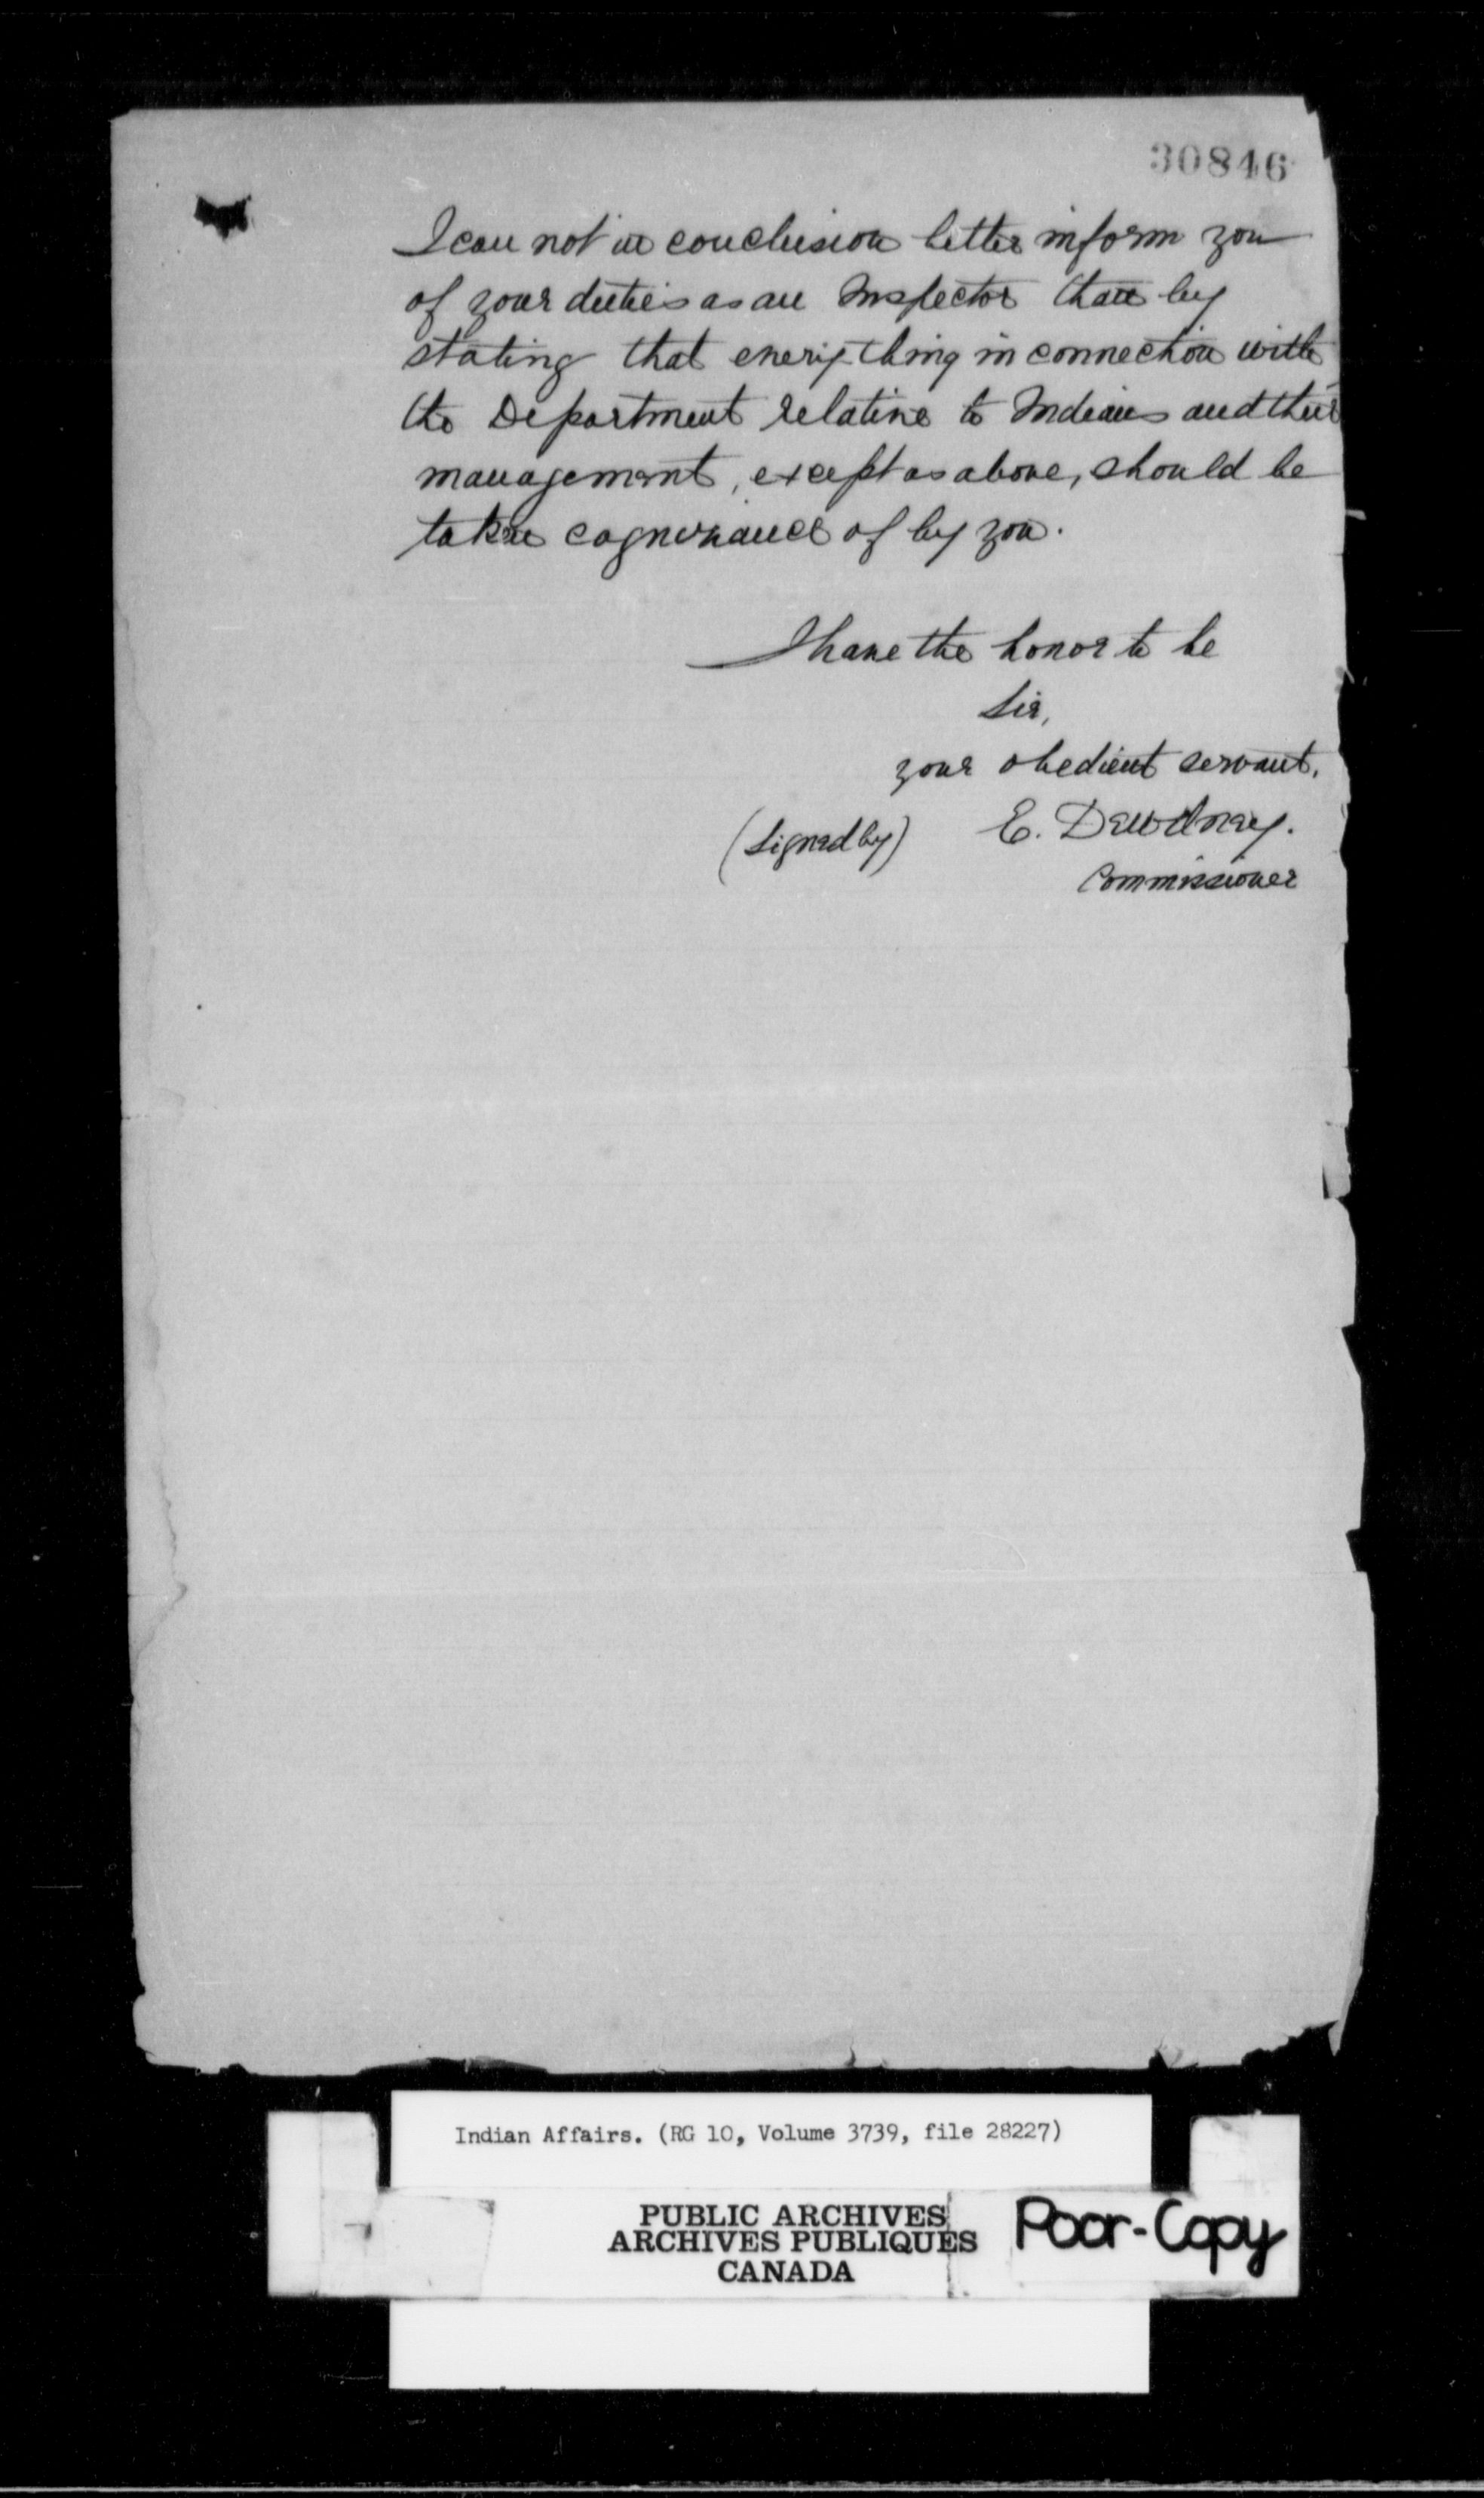 30846
I can not in conclusion better inform you
of your duties as an Inspector than by
stating that everything in connection with
the Department relative to Indians and their
management, except as above, should be
taken cognizance of by you.
I have the honor to be
Sir,
your obedient servant.
(Signed by) E. Dewdney.
Commissioner
Indian Affairs. (RG 10, Volume 3739, file 28227)
PUBLIC ARCHIVES
ARCHIVES PUBLIQUES
CANADA
Poor-Copy